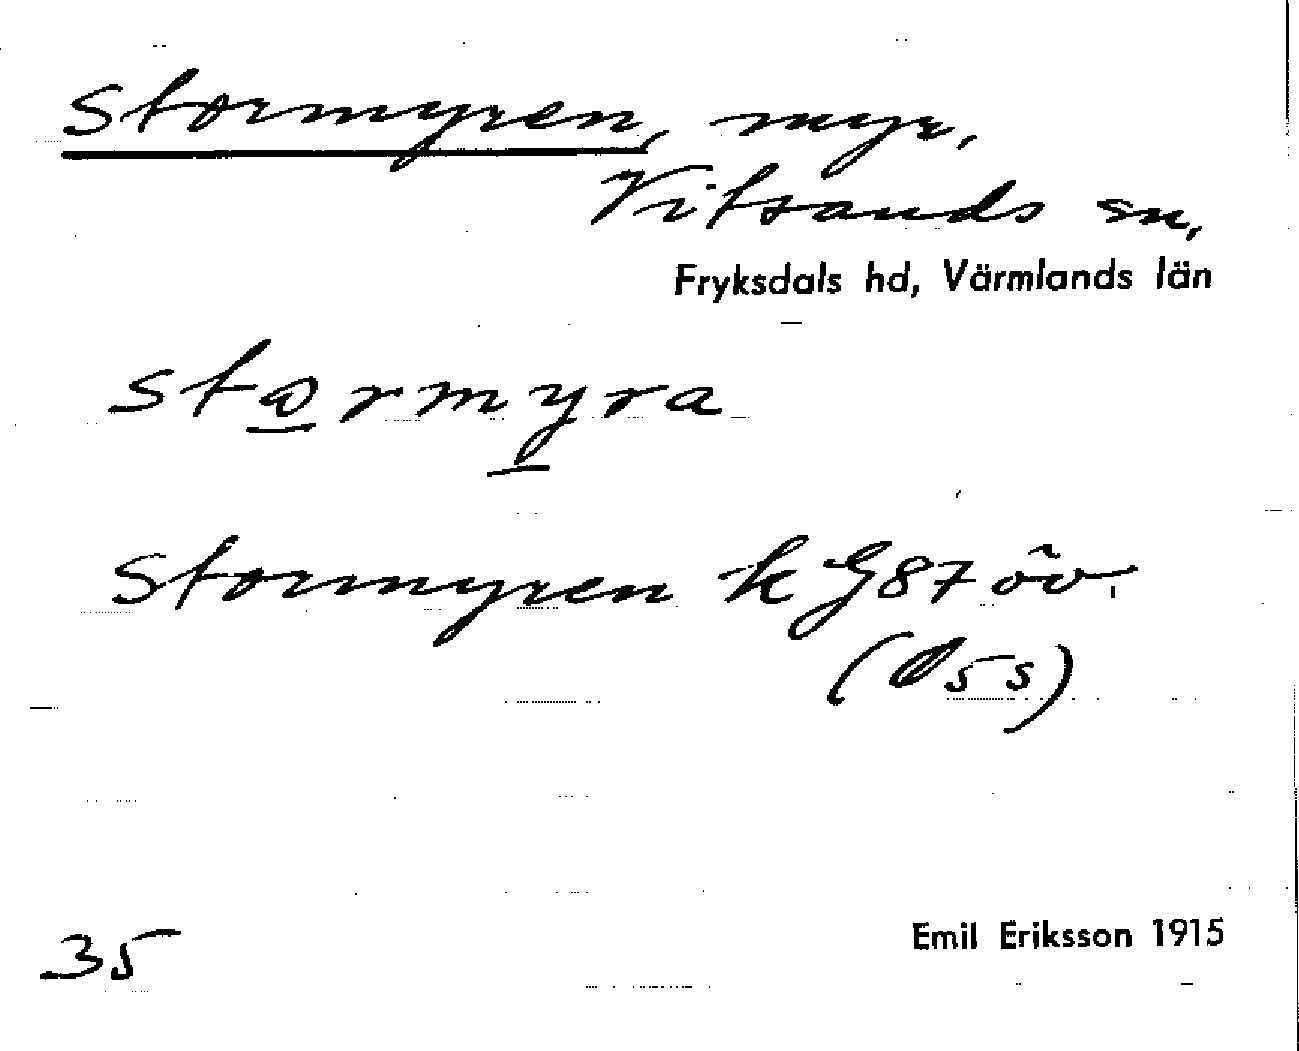 Stormyren, myr,
Vitsands sn,
Fryksdals hd, Värmlands län
stormyra
Stormyren k G87 öv.
(O5s)
35
Emil Eriksson 1915